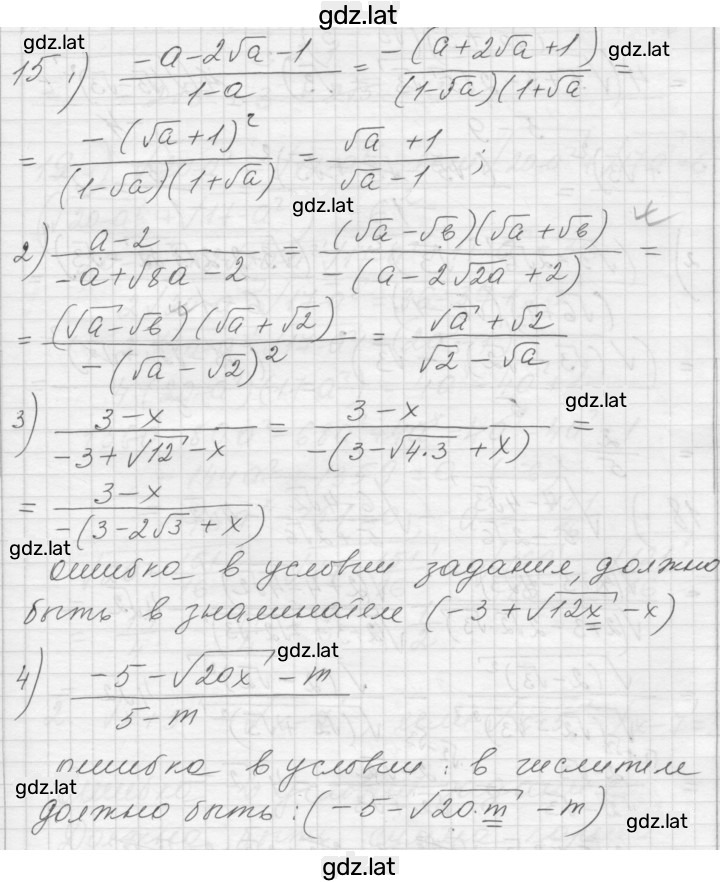 gdz.lat
gdz.lat
15 1) (-a-2√a-1)/(1-a) = (-(a+2√a+1))/((1-√a)(1+√a) =
gdz.lat
= (-(√a+1)²)/((1-√a)(1+√a)) = (√a+1)/(√a-1) ;
gdz.lat
2) (a-2)/(-a+√8a-2) = ((√a-√в)(√a+√в))/(-(a-2√2a+2)) =
= ((√a-√в)(√a+√2))/(-(√a-√2)²) = (√a+√2)/(√2-√a)
gdz.lat
3) (3-x)/(-3+√12-x) = (3-x)/(-(3-√4·3+x)) =
= (3-x)/(-(3-2√3+x))
gdz.lat
ошибка в условии задания, должно
быть в знаминателе (-3+√12x-x)
gdz.lat
4) (-5-√20x-m)/(5-m)
ошибка в условии : в числителе
gdz.lat
должно быть : (-5-√20·m-m)
gdz.lat
gdz.lat